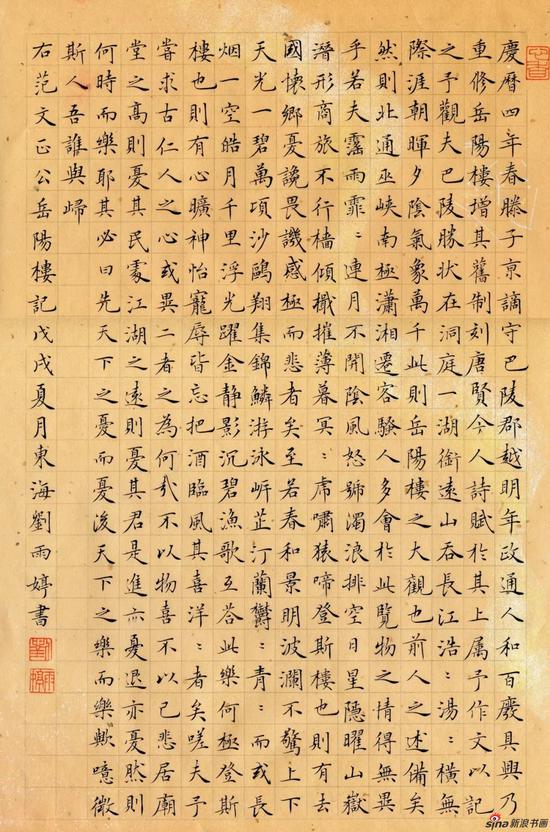 慶曆四年春滕子京謫守巴陵郡越明年政通人和百廢具興乃
重修岳陽樓增其舊制刻唐賢今人詩賦於其上属予作文以記
之予觀夫巴陵勝状在洞庭一湖銜遠山吞長江浩:湯:橫無
際涯朝暉夕陰氣象萬千此則岳陽樓之大觀也前人之述備矣
然則北通巫峽南極瀟湘遷客騷人多會於此覽物之情得無異
乎若夫霪雨霏:連月不開陰風怒號濁浪排空日星隱曜山嶽
潛形商旅不行檣傾檝摧薄暮冥:虎嘯猿啼登斯樓也則有去
國懷鄉憂讒畏譏感極而悲者矣至若春和景明波瀾不驚上下
天光一碧萬頃沙鷗翔集錦鱗游泳岸芷汀蘭鬱:青:而或長
烟一空皓月千里浮光躍金静影沉碧漁歌互荅此樂何極登斯
樓也則有心曠神怡寵辱皆忘把酒臨風其喜洋:者矣嗟夫予
甞求古仁人之心或異二者之為何哉不以物喜不以己悲居廟
堂之高則憂其民處江湖之遠則憂其君是進亦憂退亦憂然則
何時而樂耶其必曰先天下之憂而憂後天下之樂而樂歟噫微
斯人吾誰與歸
右范文正公岳陽樓記戊戌夏月東海劉雨婷書
sina新浪书画